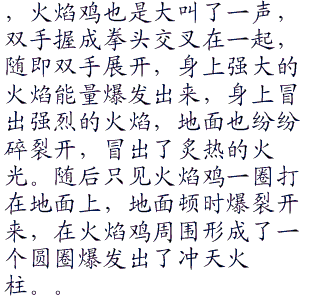 ，火焰鸡也是大叫了一声，
双手握成拳头交叉在一起，
随即双手展开，身上强大的
火焰能量爆发出来，身上冒
出强烈的火焰，地面也纷纷
碎裂开，冒出了炙热的火
光。随后只见火焰鸡一圈打
在地面上，地面顿时爆裂开
来，在火焰鸡周围形成了一
个圆圈爆发出了冲天火
柱。。